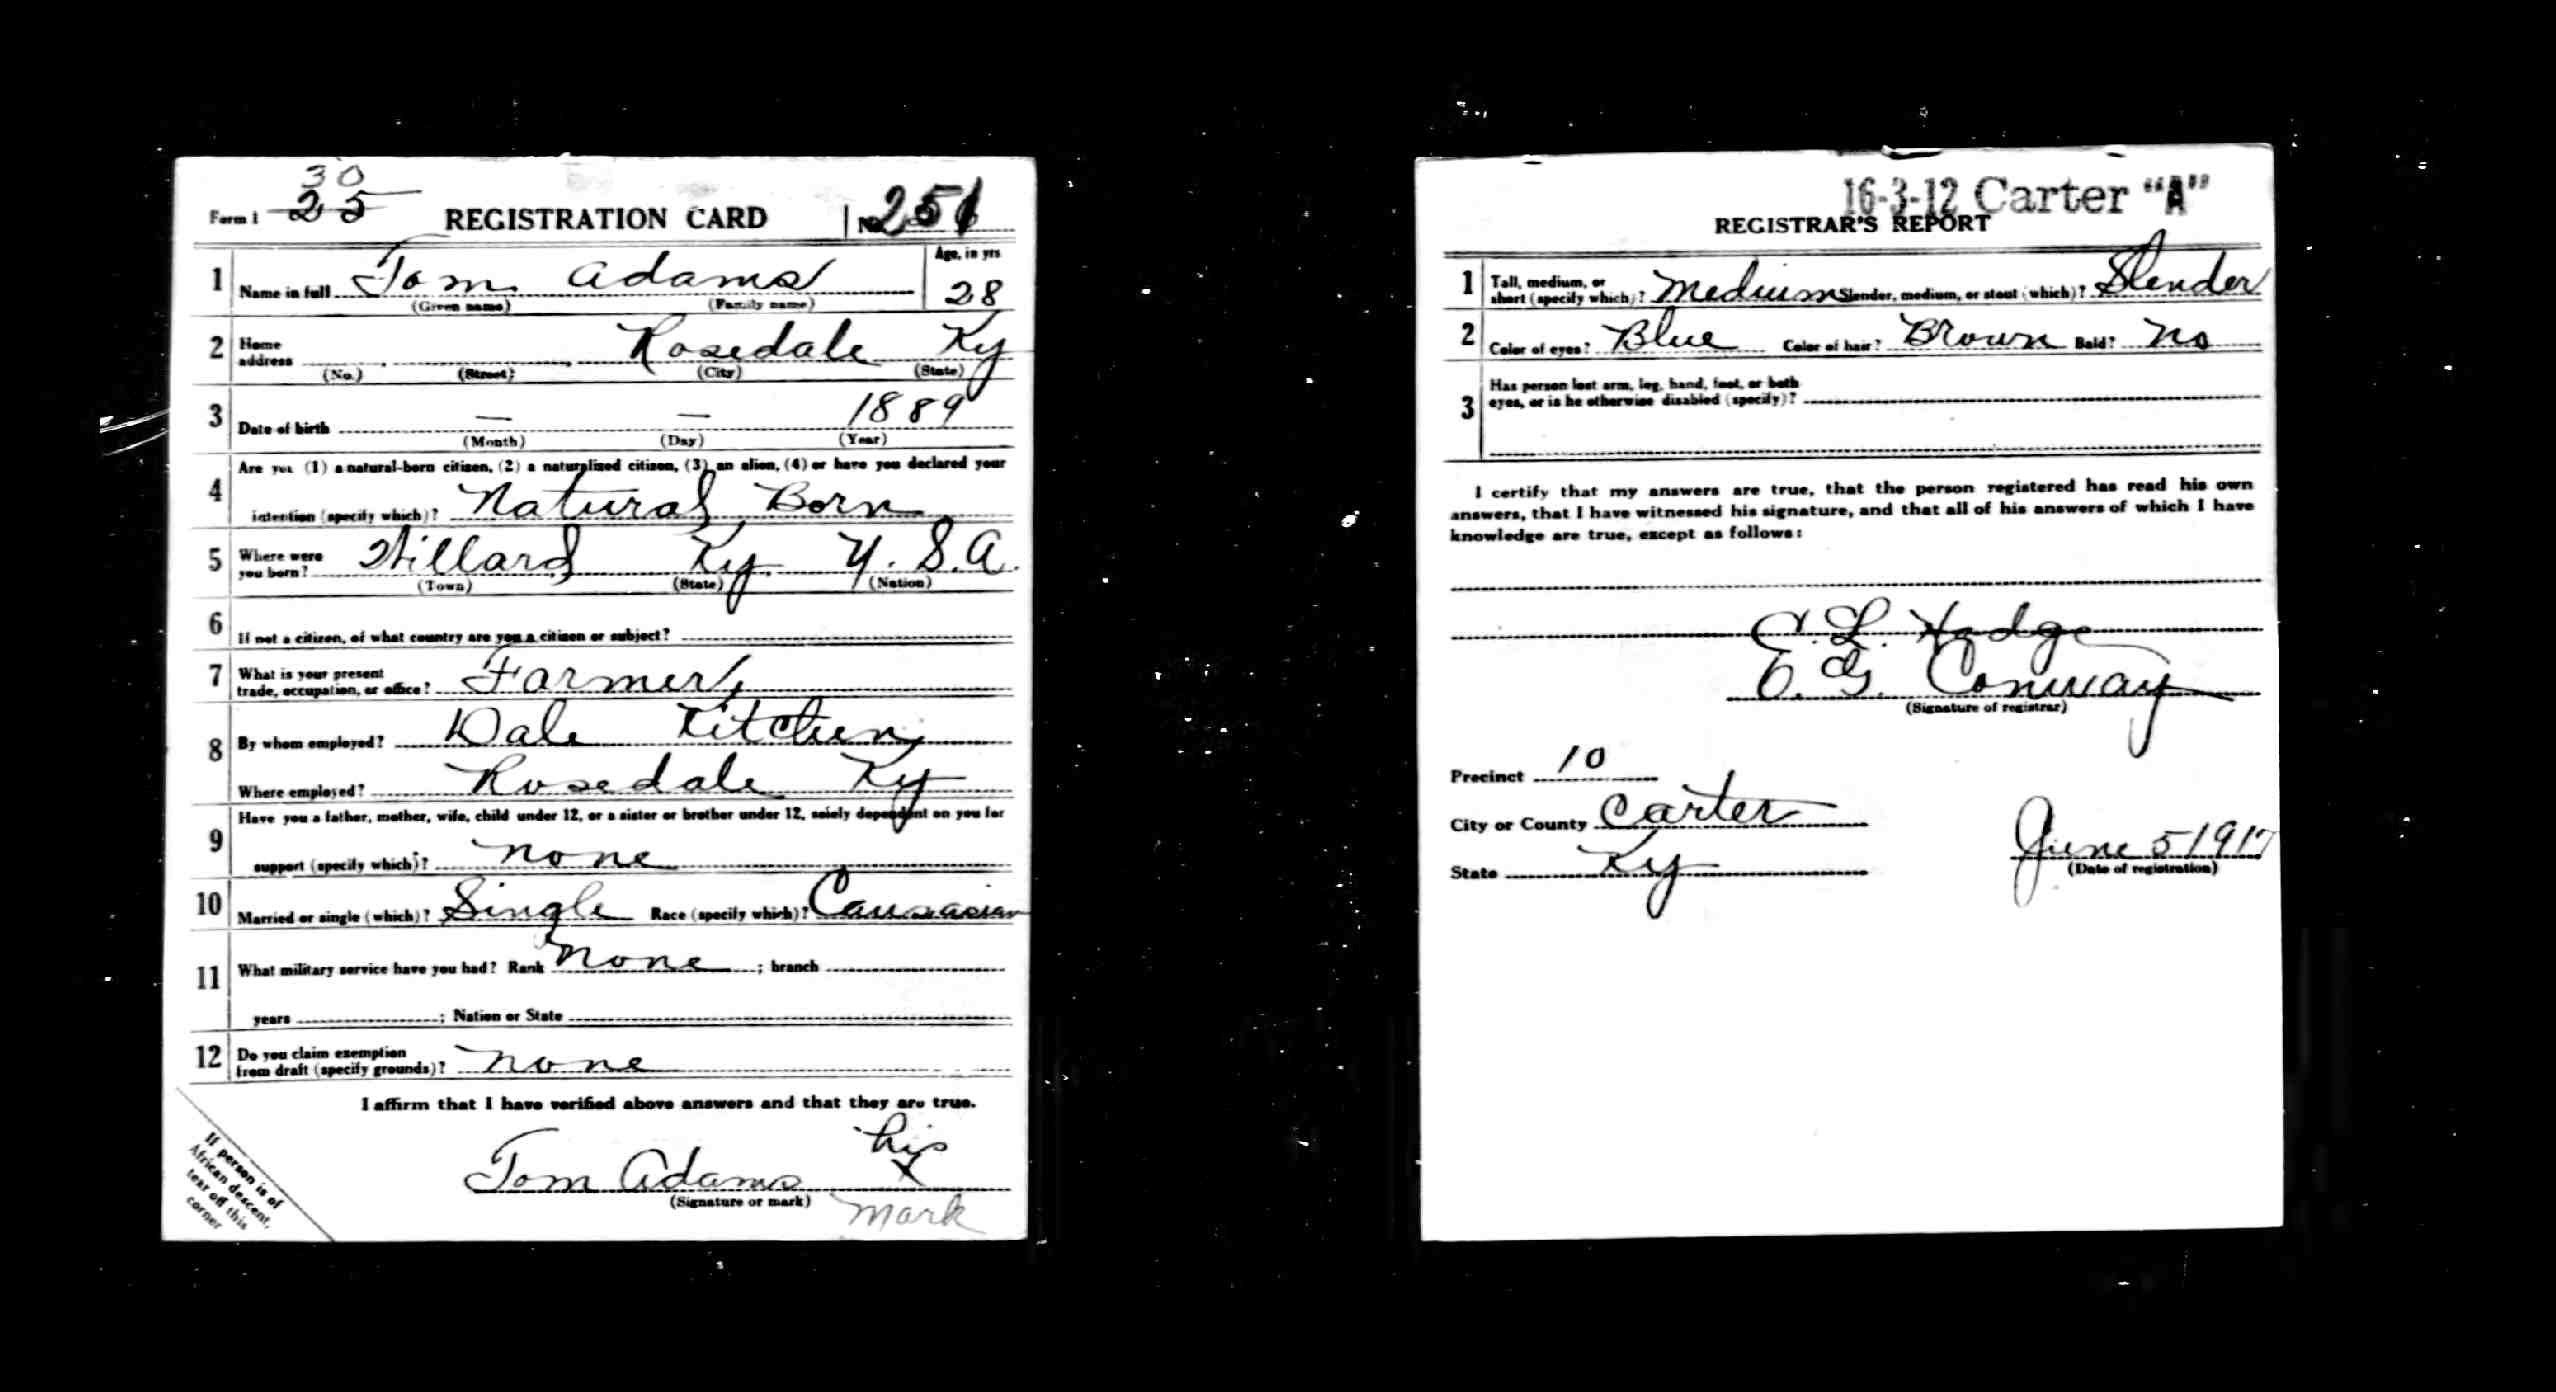 30
Form 1 25 REGISTRATION CARD No. 251
1 Name in full Tom Adams Age, in yrs 28
(Given name) (Family name)
2 Home address Rosedale Ky
(No.) (Street) (City) (State)
3 Date of birth — — 1889
(Month) (Day) (Year)
4 Are you (1) a natural-born citizen, (2) a naturalized citizen, (3) an alien, (4) or have you declared your
intention (specify which)? Natural Born
5 Where were you born? Willard Ky. U.S.A.
(Town) (State) (Nation)
6 If not a citizen, of what country are you a citizen or subject?
7 What is your present trade, occupation, or office? Farmer,
8 By whom employed? Dale Kitchen
Where employed? Rosedale Ky
9 Have you a father, mother, wife, child under 12, or a sister or brother under 12, solely dependent on you for
support (specify which)? none
10 Married or single (which)? Single Race (specify which)? Caucasian
11 What military service have you had? Rank none ; branch
years ; Nation or State
12 Do you claim exemption from draft (specify grounds)? none
I affirm that I have verified above answers and that they are true.
his
Tom Adams X
(Signature or mark) mark
If person is of African descent, tear off this corner
16-3-12 Carter "A"
REGISTRAR'S REPORT
1 Tall, medium, or short (specify which)? Medium Slender, medium, or stout (which)? Slender
2 Color of eyes? Blue Color of hair? Brown Bald? No
3 Has person lost arm, leg, hand, foot, or both eyes, or is he otherwise disabled (specify)?
I certify that my answers are true, that the person registered has read his own
answers, that I have witnessed his signature, and that all of his answers of which I have
knowledge are true, except as follows:
E. L. Hodge
E. G. Conway
(Signature of registrar)
Precinct 10
City or County Carter
State Ky
June 5 1917
(Date of registration)